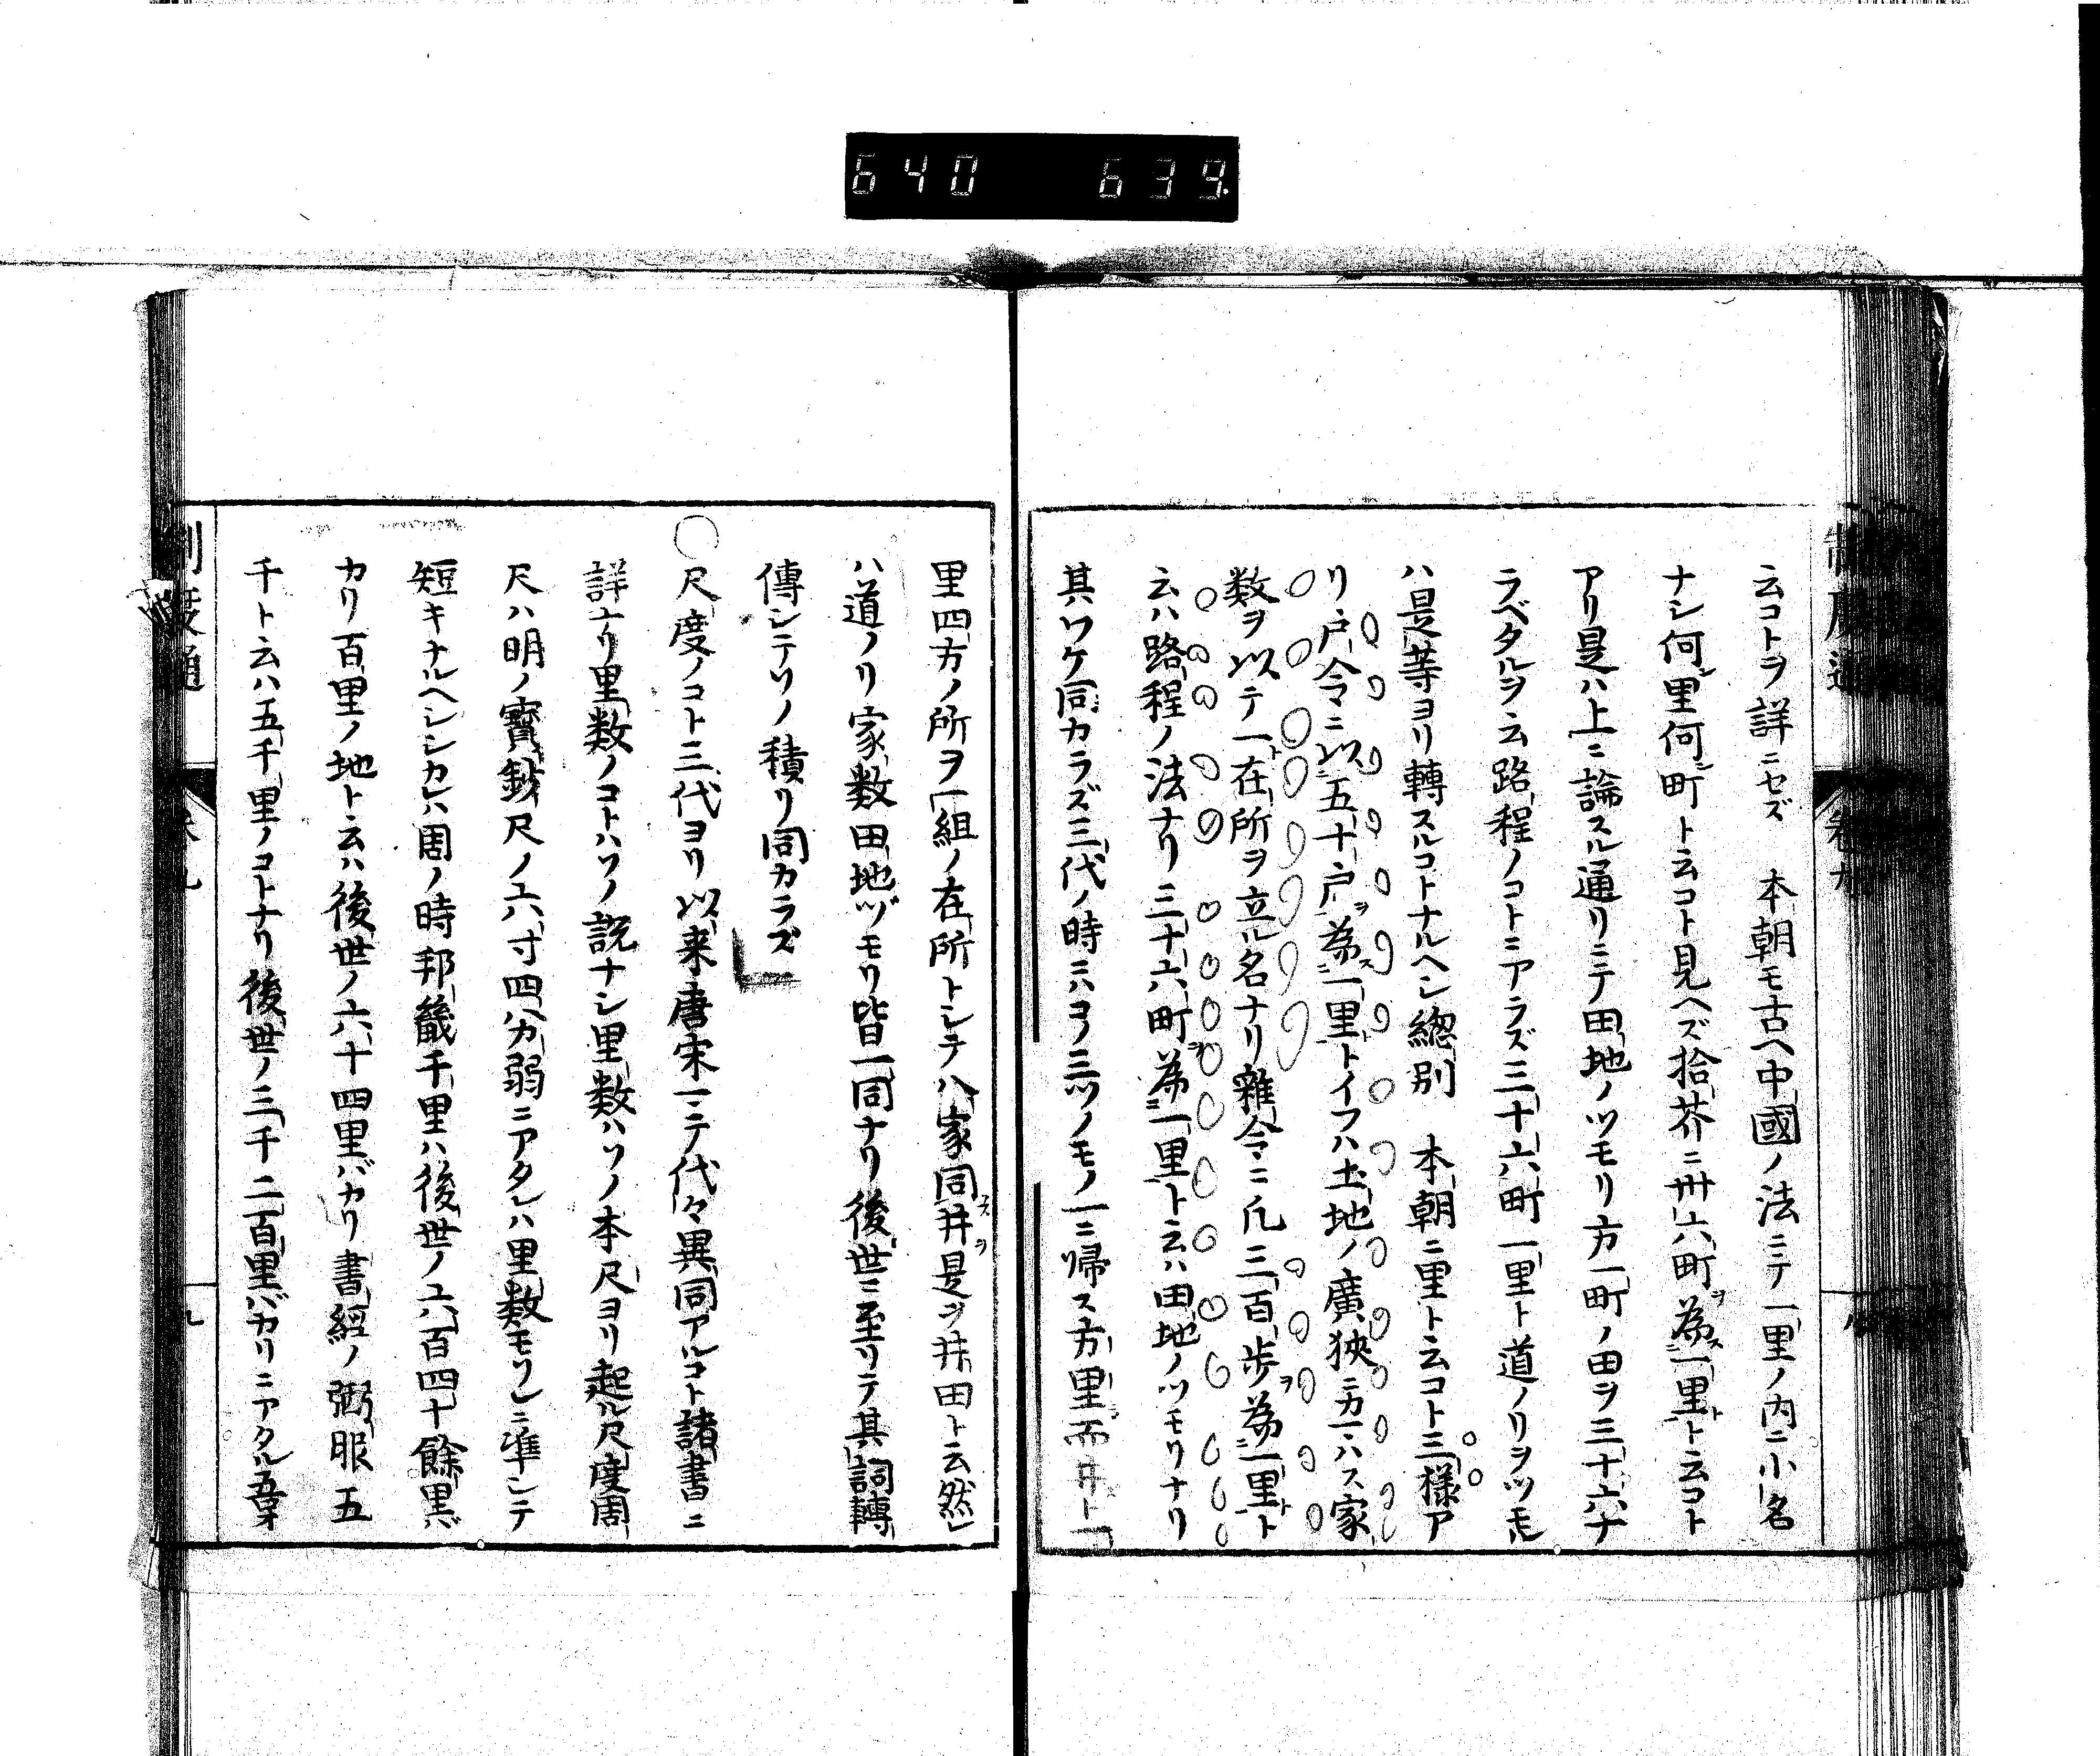 640 639
云コトヲ詳ニセズ 本朝モ古ヘ中國ノ法ニテ一里ノ内ニ小名
ナシ何里何町ト云コト見ヘズ拾芥ニ卅六町ヲ為ス一里ト云コト
アリ是ハ上ニ論スル通リニテ田地ノツモリ方一町ノ田ヲ三十六ナ
ラベタルヲ云路程ノコトニアラズ三十六町一里ト道ノリヲツモル
ハ是等ヨリ轉スルコトナルヘシ總別 本朝ニ里ト云コト三様ア
リ戸令ニ以五十戸ヲ為ス一里トイフハ土地ノ廣狹ニカヽハラス家
数ヲ以テ一在所ヲ立ル名ナリ雜令ニ凡三百歩ヲ為一里ト
云ハ路程ノ法ナリ三十六町ヲ為一里ト云ハ田地ノツモリナリ
其ワケ同カラズ三代ノ時ニハコノ三ツノモノ一ニ帰ス方里而井ト一
里四方ノ所ヲ一組ノ在所トシテ八家同ス井ヲ是ヲ井田ト云然レ
ハ道ノリ家数田地ヅモリ皆一同ナリ後世ニ至リテ其詞轉
傳シテソノ積リ同カラズ
○尺度ノコト三代ヨリ以来唐宋ニテ代々異同アルコト諸書ニ
詳ナリ里数ノコトハソノ説ナシ里数ハソノ本尺ヨリ起ル尺度周
尺ハ明ノ寳鈔尺ノ六寸四八カ弱ニアタレハ里数モソレニ準シテ
短キナルヘシシカレハ周ノ時邦畿千里ハ後世ノ六百四十餘里バ
カリ百里ノ地ト云ハ後世ノ六十四里バカリ書經ノ弼服五
千ト云ハ五千里ノコトナリ後世ノ三千二百里バカリニアタル
制度通 卷九 九